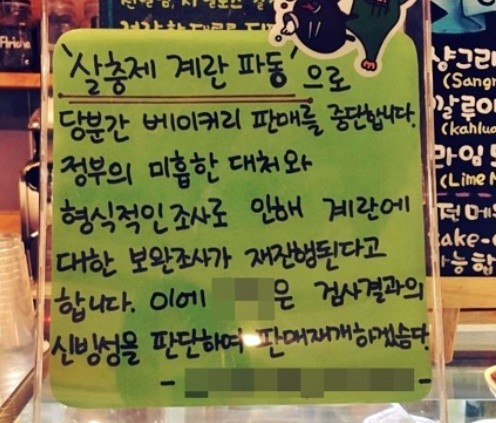 '살충제 계란 파동'으로
당분간 베이커리 판매를 중단합니다.
정부의 미흡한 대처와
형식적인 조사로 인해 계란에
대한 보완조사가 재진행된다고
합니다. 이에 은 검사결과의
신빙성을 판단하여 판매재개하겠습니다.
샹그리
(Sangr
깔루아
(kahlua
라임
(Lime M